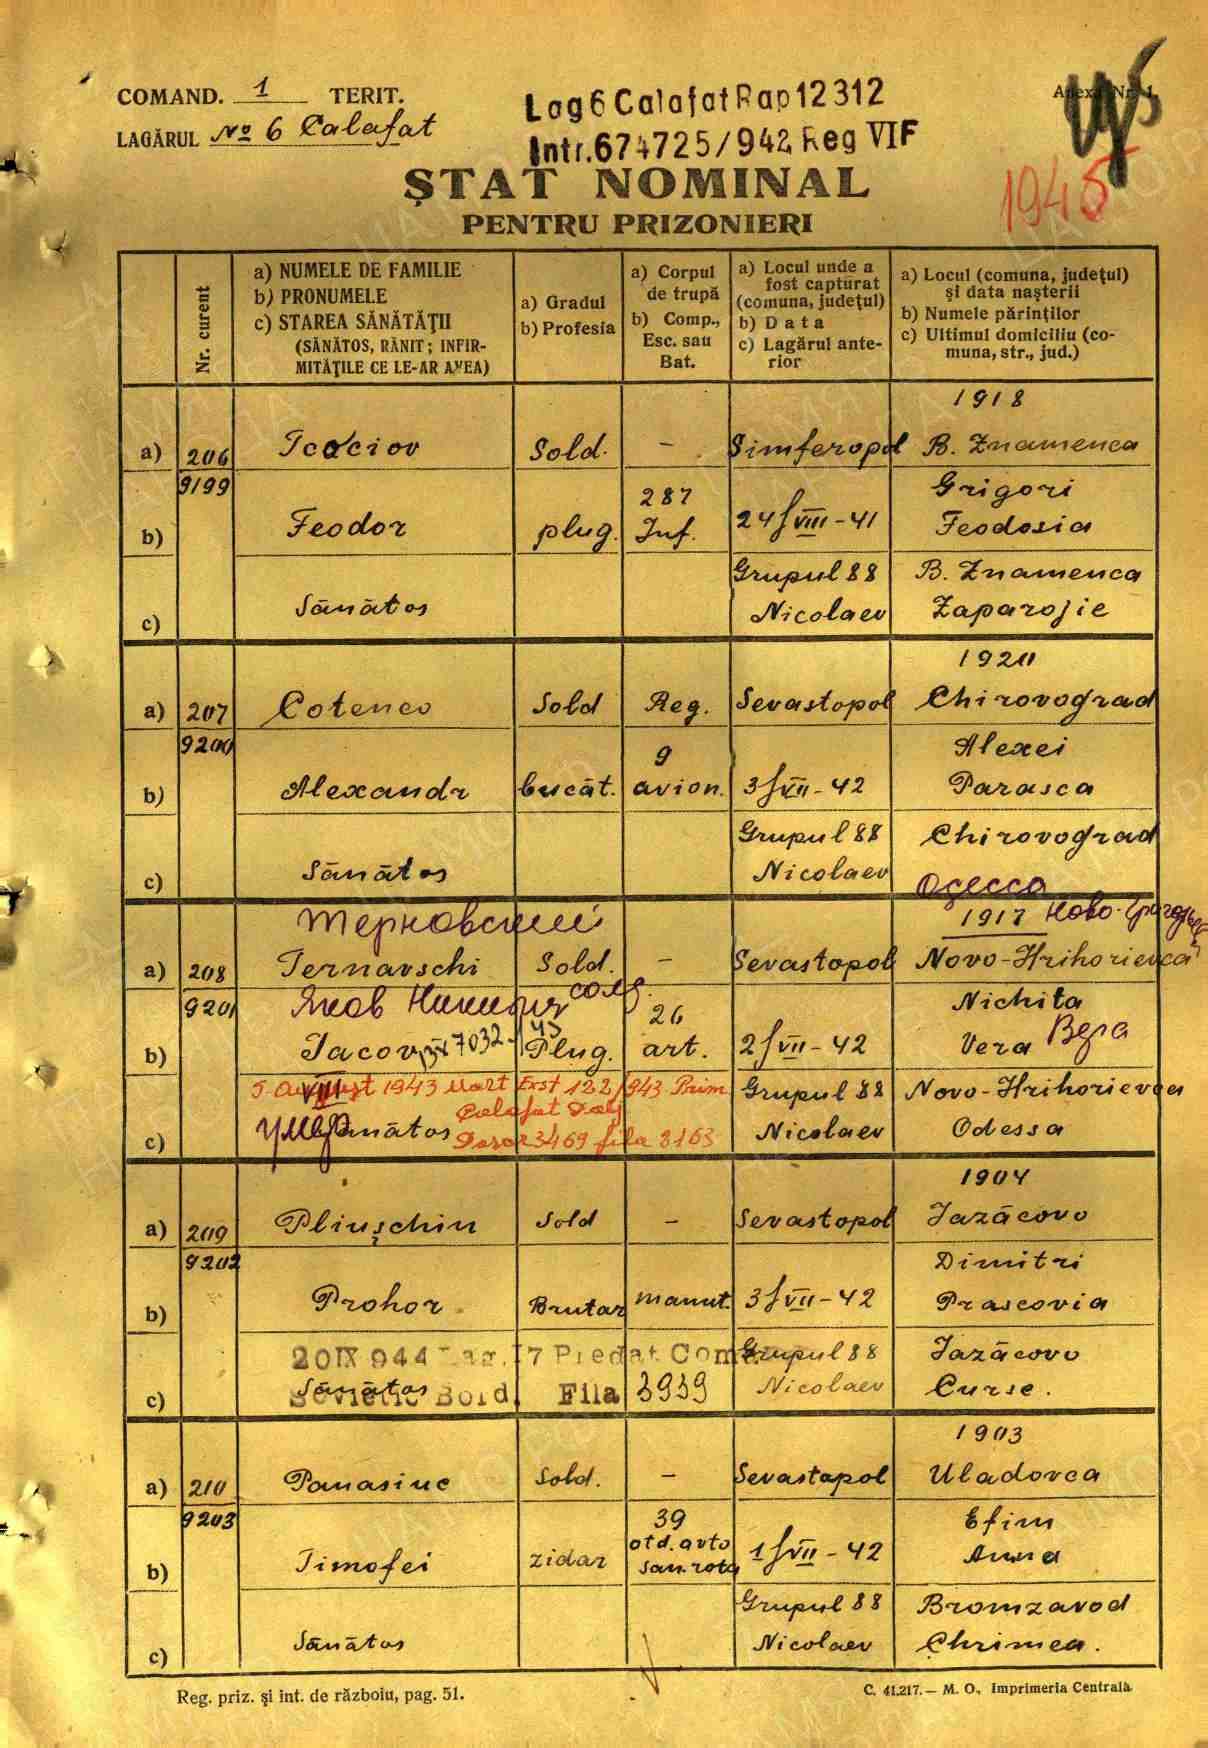 COMAND. 1 TERIT.
LAGĂRUL No 6 Calafat
Lag 6 Calafat Rap 12312
Intr. 674725/942 Reg VIF
Anexa Nr. 1
1945
ȘTAT NOMINAL
PENTRU PRIZONIERI
Nr. curent
a) NUMELE DE FAMILIE
b) PRONUMELE
c) STAREA SĂNĂTĂȚII
(SĂNĂTOS, RĂNIT; INFIR-
MITĂȚILE CE LE-AR AVEA)
a) Gradul
b) Profesia
a) Corpul
de trupă
b) Comp.,
Esc. sau
Bat.
a) Locul unde a
fost capturat
(comuna, județul)
b) Data
c) Lagărul ante-
rior
a) Locul (comuna, județul)
și data nașterii
b) Numele părinților
c) Ultimul domiciliu (co-
muna, str., jud.)
1918
a) 206 Sold. – Simferopol B. Znamenca
9199
287 Grigori
b) Feodor plug. Inf. 24/VIII-41 Feodosia
Grupul 88 B. Znamenca
c) Sănătos Nicolaev Zaparojie
1920
a) 207 Cotenco Sold Reg. Sevastopol Chirovograd
9200
9 Alexei
b) Alexandr bucăt. avion. 3/VII-42 Parasca
Grupul 88 Chirovograd
c) Sănătos Nicolaev
Одесса
Терновский 1917 Ново-
a) 208 Ternavschi Sold. – Sevastopol Novo-Hrihorievca
9201 Яков солд. Nichita
26
b) Iacov 7032 Plug. art. 2/VII-42 Vera Вера
5 August 1943 Mort Exst 122/943 Prim Grupul 88 Novo-Hrihorievca
VIII
Calafat
c) умер Sănătos Dosar 3469 fila 3163 Nicolaev Odessa
1904
a) 209 Pliușchin Sold – Sevastopol Iazăcovo
9202 Dimitri
b) Prohor Brutar manut. 3/VII-42 Prascovia
20 IX 944 Lag. 17 Predat Com. Grupul 88 Iazăcovo
c) Sănătos Nicolaev Curse.
Sovietic Bord. Fila 3939
1903
a) 210 Panasiuc Sold. – Sevastapol Uladovca
9203
39 Efim
otd. avto
b) Timofei zidar san. rota 1/VII-42 Anna
Grupul 88 Bromzavod
c) Sănătos Nicolaev Chrimea.
Reg. priz. și int. de războiu, pag. 51.
C. 41.217.— M. O., Imprimeria Centrală.